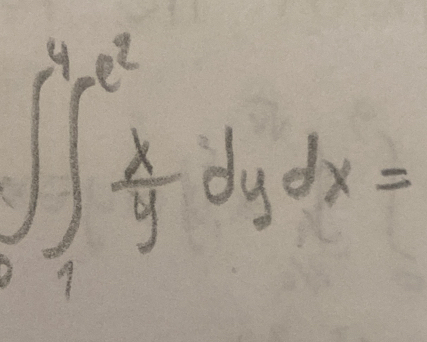 ∫₀⁴ ∫₁^{e²} x/y dy dx =